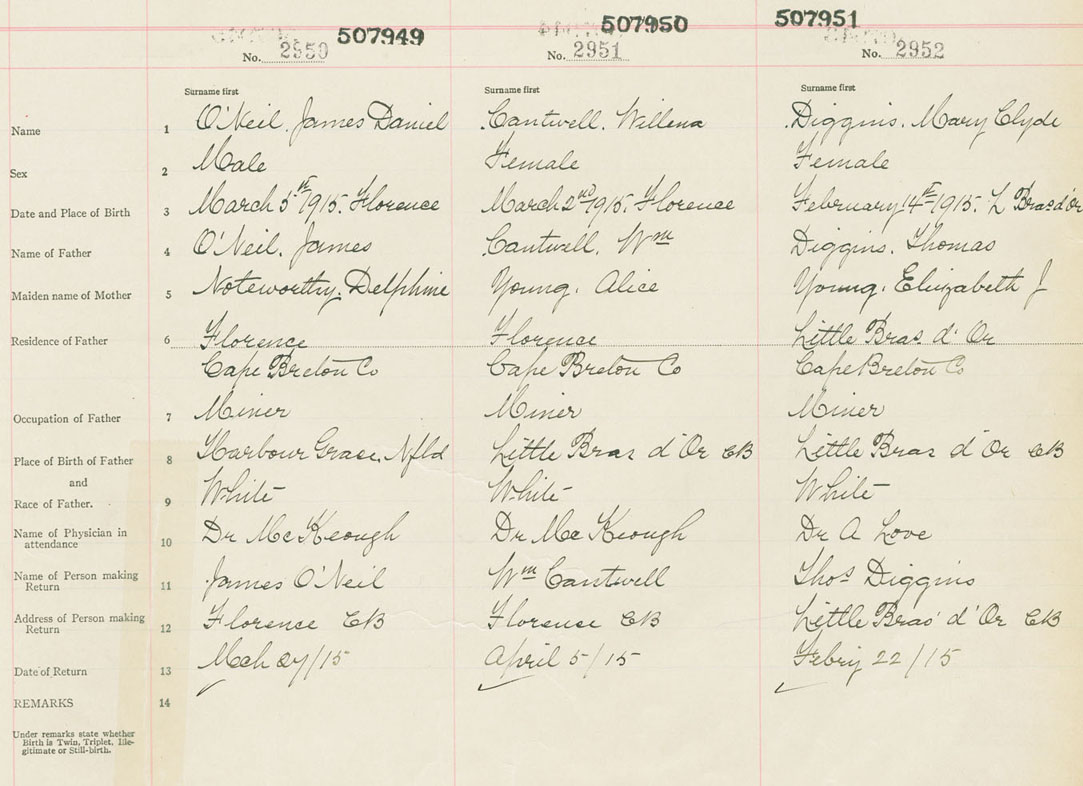 507949 507950 507951
No. 2950 No. 2951 No. 2952
Surname first Surname first Surname first
Name 1 O'Neil, James Daniel Cantwell, Willena Diggins, Mary Clyde
Sex 2 Male Female Female
Date and Place of Birth 3 March 5th 1915. Florence March 2nd 1915. Florence February 14th 1915. L Bras d'Or
Name of Father 4 O'Neil, James Cantwell, Wm Diggins, Thomas
Maiden name of Mother 5 Noteworthy, Delphine Young, Alice Young, Elizabeth J
Residence of Father 6 Florence Florence Little Bras d'Or
Cape Breton Co Cape Breton Co Cape Breton Co
Occupation of Father 7 Miner Miner Miner
Place of Birth of Father 8 Harbour Grace, Nfld Little Bras d'Or CB Little Bras d'Or CB
and
Race of Father. 9 White White White
Name of Physician in
attendance 10 Dr McKeough Dr McKeough Dr A Love
Name of Person making
Return 11 James O'Neil Wm Cantwell Thos Diggins
Address of Person making
Return 12 Florence CB Florence CB Little Bras d'Or CB
Date of Return 13 Mch 27/15 April 5/15 Febry 22/15
REMARKS 14
Under remarks state whether
Birth is Twin, Triplet, Ille-
gitimate or Still-birth.